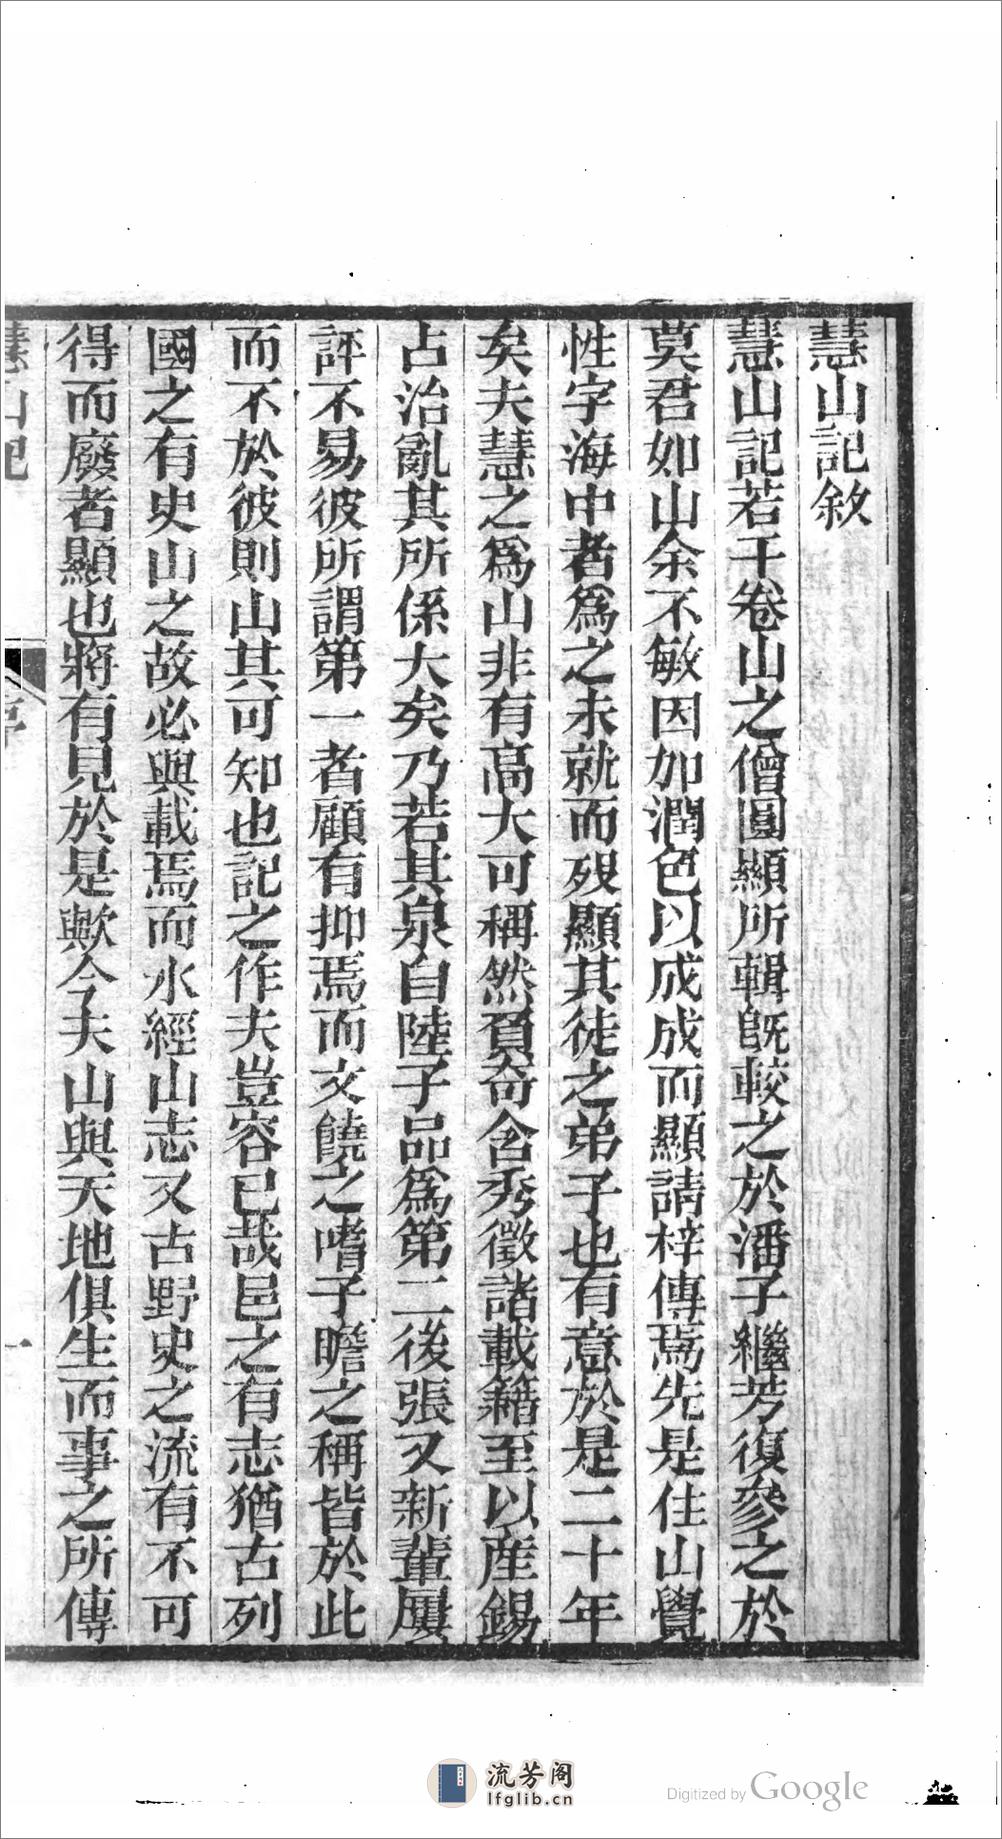 慧山記敘
慧山記若干卷山之僧圓顯所輯旣較之於潘子繼芳復參之於
莫君如山余不敏因加潤色以成成而顯請梓傳焉先是住山覺
性字海中者爲之未就而歿顯其徒之弟子也有意於是二十年
矣夫慧之爲山非有高大可稱然負奇含秀徵諸載籍至以產錫
占治亂其所係大矣乃若其泉自陸子品爲第二後張又新輩屢
評不易彼所謂第一者顧有抑焉而文饒之嗜子瞻之稱皆於此
而不於彼則山其可知也記之作夫豈容已哉邑之有志猶古列
國之有史山之故必與載焉而水經山志又古野史之流有不可
得而廢者顯也將有見於是歟今夫山與天地俱生而事之所傳
慧山記
序
一
流芳阁
lfglib.cn
Digitized by Google